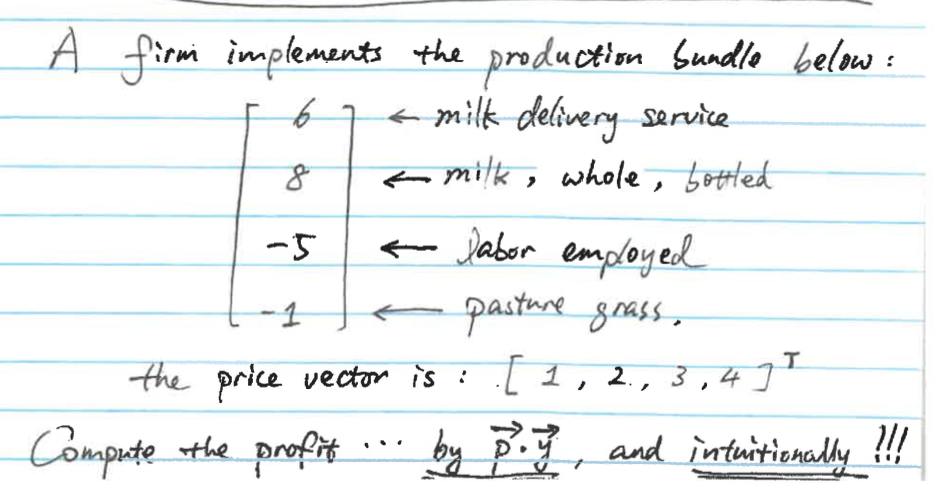 A firm implements the production bundle below:
6 ← milk delivery service
8 ← milk, whole, bottled
-5 ← labor employed
-1 ← pasture grass.
the price vector is: [1, 2, 3, 4]ᵀ
Compute the profit ... by p⃗·y⃗, and intuitionally!!!